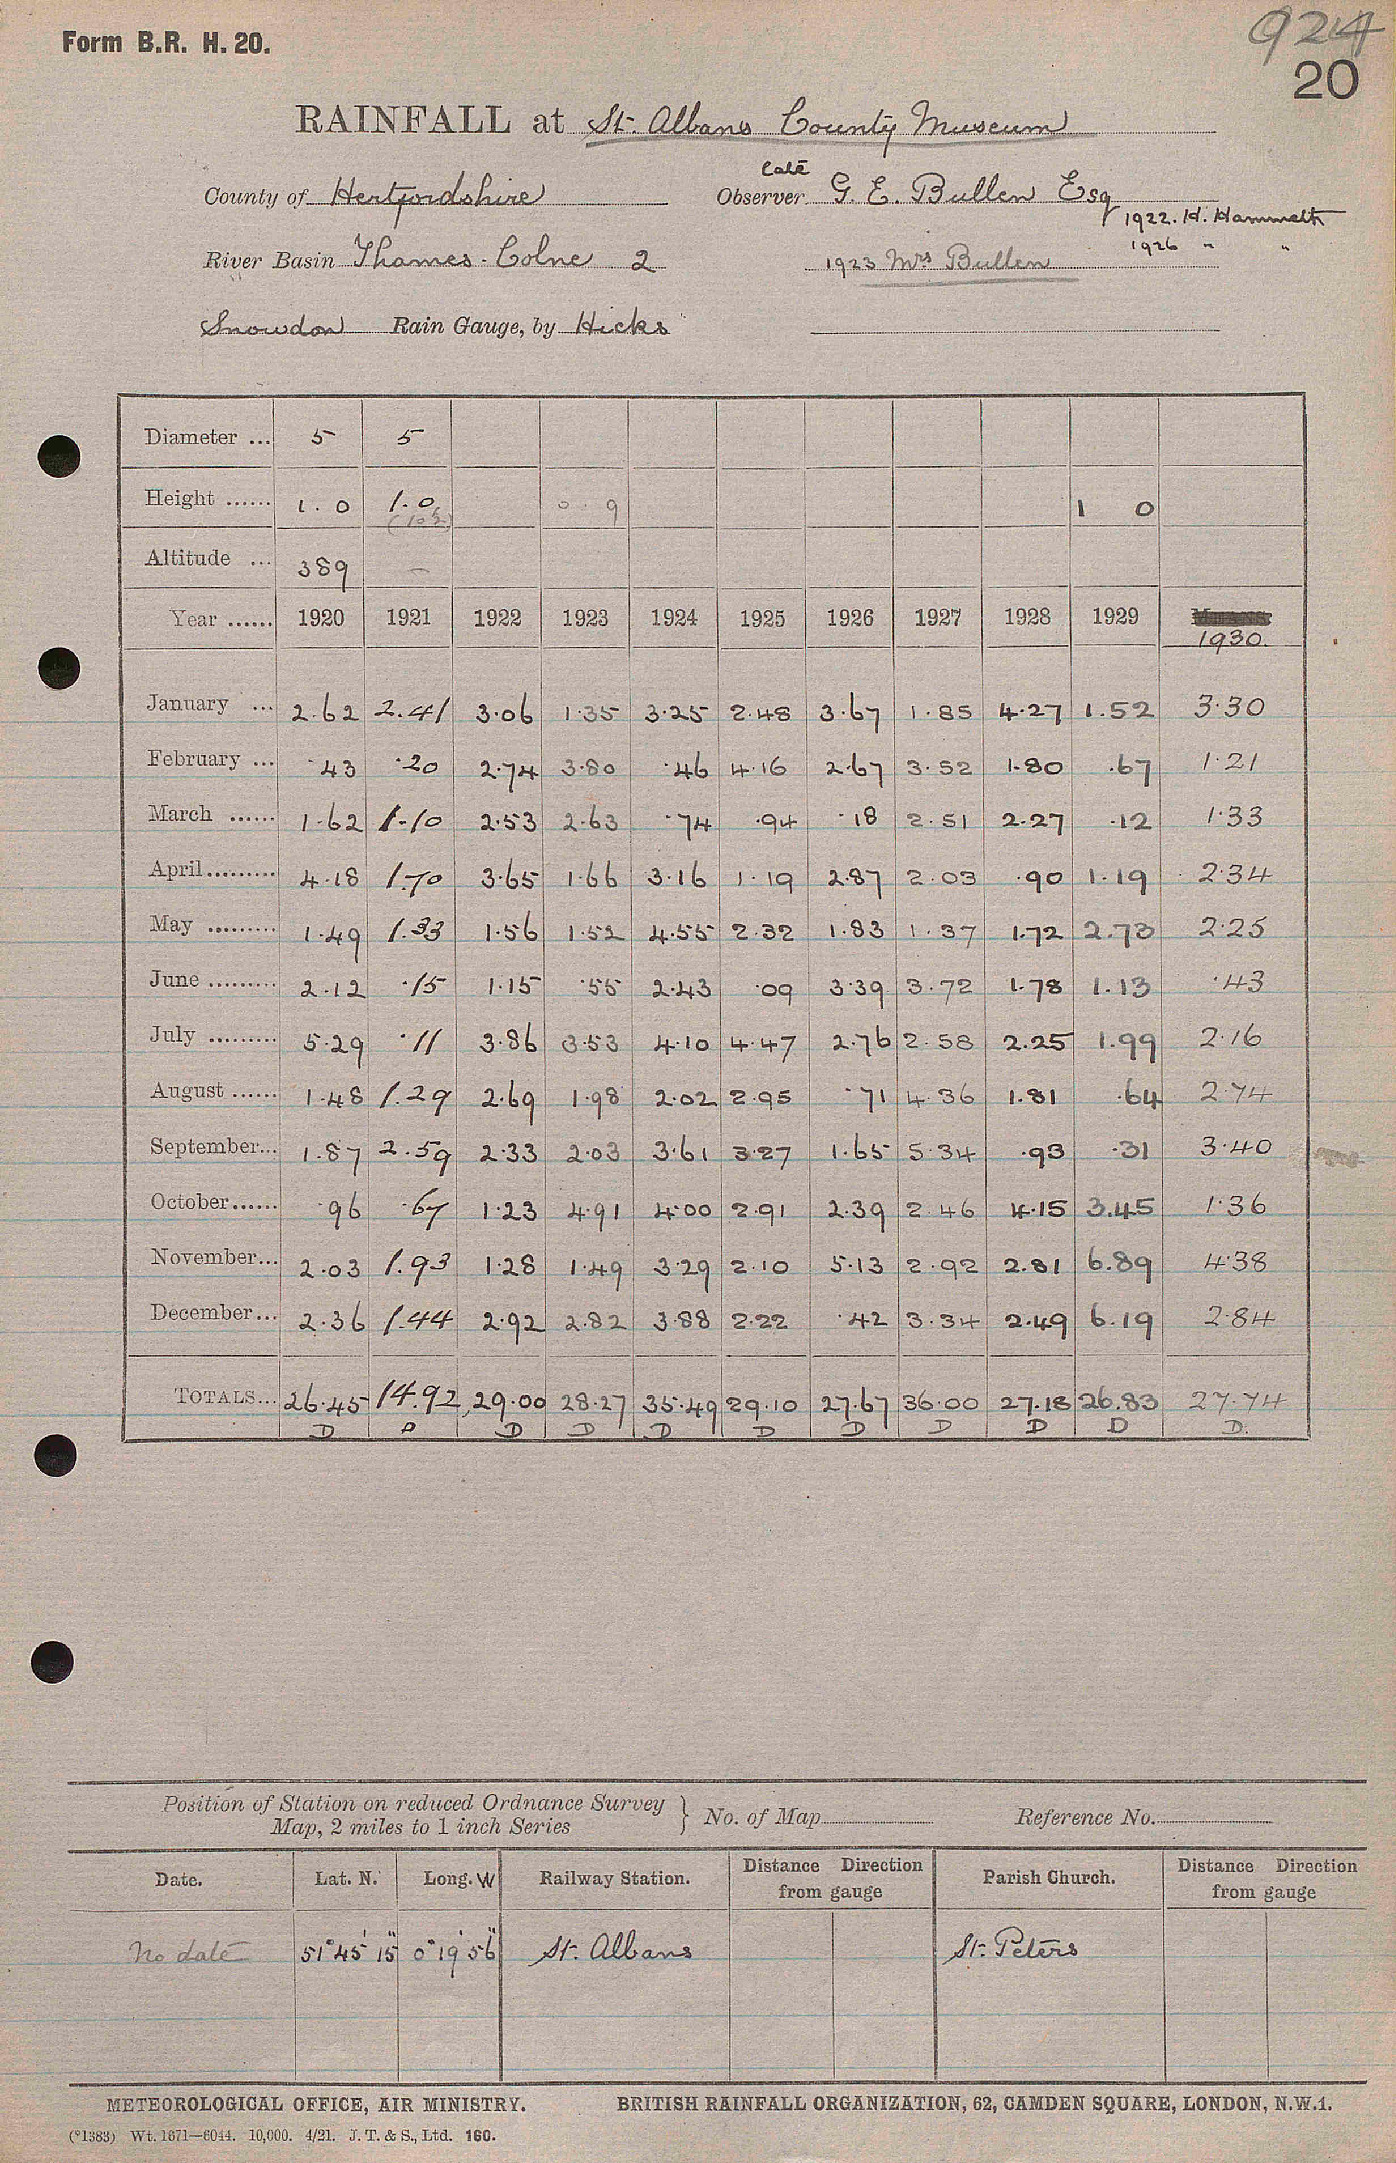 Form B.R. H. 20.
924
20
RAINFALL at St. Albans County Museum
County of Hertfordshire
late
Observer G. E. Bullen Esq
1922. H. Hammett
1926 " "
River Basin Thames - Colne 2
1923 Mrs Bullen
Snowdon Rain Gauge, by Hicks
Diameter ... 5 5
Height ...... 1.0 1.0 0.9 1 0
(10½)
Altitude ... 389 -
Year ...... 1920 1921 1922 1923 1924 1925 1926 1927 1928 1929
1930.
January ... 2.62 2.41 3.06 1.35 3.25 2.48 3.67 1.85 4.27 1.52 3.30
February ... .43 .20 2.74 3.80 .46 4.16 2.67 3.52 1.80 .67 1.21
March ...... 1.62 1.10 2.53 2.63 .74 .94 .18 2.51 2.27 .12 1.33
April......... 4.18 1.70 3.65 1.66 3.16 1.19 2.87 2.03 .90 1.19 2.34
May ......... 1.49 1.33 1.56 1.52 4.55 2.32 1.83 1.37 1.72 2.73 2.25
June ......... 2.12 .15 1.15 .55 2.43 .09 3.39 3.72 1.78 1.13 .43
July ......... 5.29 .11 3.86 3.53 4.10 4.47 2.76 2.58 2.25 1.99 2.16
August ...... 1.48 1.29 2.69 1.98 2.02 2.95 .71 4.36 1.81 .64 2.74
September... 1.87 2.59 2.33 2.03 3.61 3.27 1.65 5.34 .93 .31 3.40
October...... .96 .67 1.23 4.91 4.00 2.91 2.39 2.46 4.15 3.45 1.36
November... 2.03 1.93 1.28 1.49 3.29 2.10 5.13 2.92 2.81 6.89 4.38
December... 2.36 1.44 2.92 2.82 3.88 2.22 .42 3.34 2.49 6.19 2.84
TOTALS... 26.45 14.92 29.00 28.27 35.49 29.10 27.67 36.00 27.18 26.83 27.74
D D D D D D D D D D D.
Position of Station on reduced Ordnance Survey
Map, 2 miles to 1 inch Series
No. of Map
Reference No.
Date. Lat. N. Long. W Railway Station. Distance Direction from gauge Parish Church. Distance Direction from gauge
No date 51° 45' 15" 0° 19' 56" St. Albans St. Peters
METEOROLOGICAL OFFICE, AIR MINISTRY. BRITISH RAINFALL ORGANIZATION, 62, CAMDEN SQUARE, LONDON, N.W.1.
(*1383) Wt. 1671—6044. 10,000. 4/21. J. T. & S., Ltd. 160.